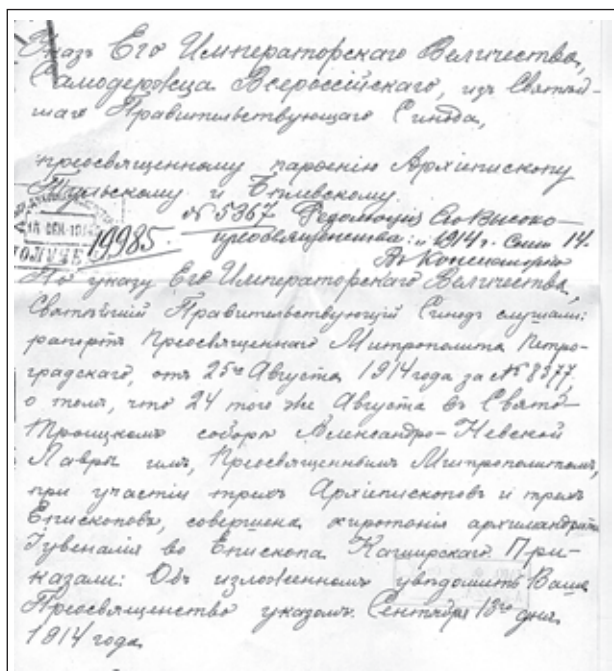 Указъ Его Императорскаго Величества,
Самодержца Всероссійскаго, изъ Святѣй-
шаго Правительствующаго Синода,
преосвященному парѳенію Архіепископу
Тульскому и Бѣлевскому.
№ 5367 Резолюція Его Высоко-
преосвященства: „1914 г. Сент. 14.
Въ Консисторію
19985.
По указу Его Императорскаго Величества,
Святѣйшій Правительствующій Синодъ слушали:
рапортъ Преосвященнаго Митрополита Петро-
градскаго, отъ 25го Августа 1914 года за № 8377,
о томъ, что 24 того же Августа въ Свято-
Троицкомъ соборѣ Александро-Невской
Лавры имъ, Преосвященнымъ Митрополитомъ,
при участіи трехъ Архіепископовъ и трехъ
Епископовъ, совершена хиротонія архимандрита
Іувеналія во Епископа Каширскаго При-
казали: Объ изложенномъ увѣдомить Ваше
Преосвященство указомъ. Сентября 13го дня
1914 года